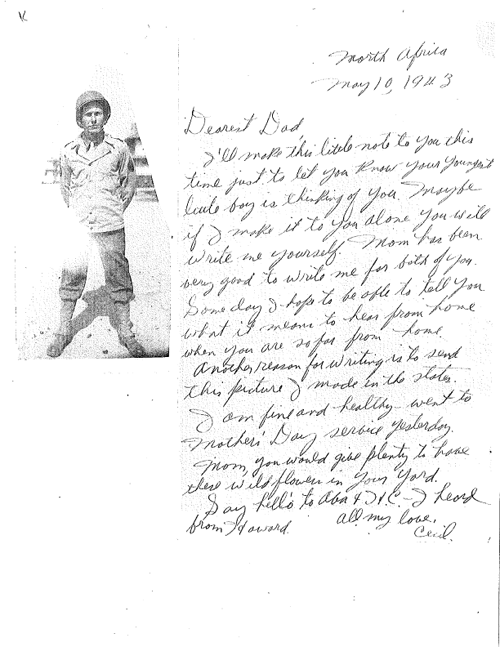 North Africa
May 10, 1943
Dearest Dad,
I'll make this little note to you this
time just to let you know your youngest
little boy is thinking of you. Maybe
if I make it to you alone you will
write me yourself. Mom has been
very good to write me for both of you.
Some day I hope to be able to tell you
what it means to hear from home
when you are so far from home.
Another reason for writing is to send
this picture I made in the states.
I am fine and healthy - went to
Mother's Day service yesterday.
Mom, you would give plenty to have
these wild flowers in your yard.
Say hello to & - I heard
from Howard. all my love,
Cecil.